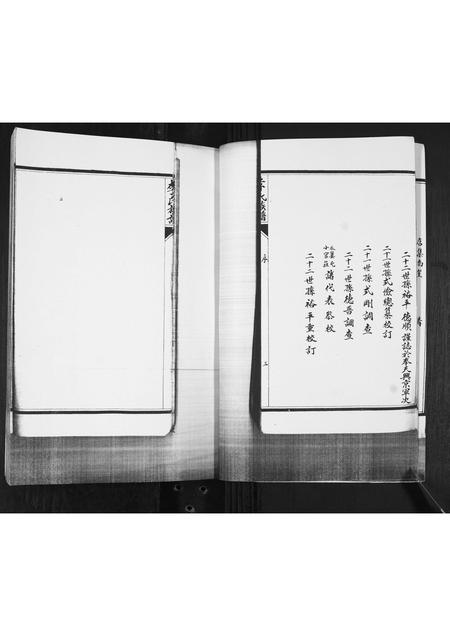 二十二世孫裕平 德順 謹誌於奉天興京軍次
二十一世孫式儉總集校訂
二十一世孫式剛調查
二十二世孫德吾調查
小宮莊 諸代表參校
二十二世孫裕平重校訂
序
三
氏族譜